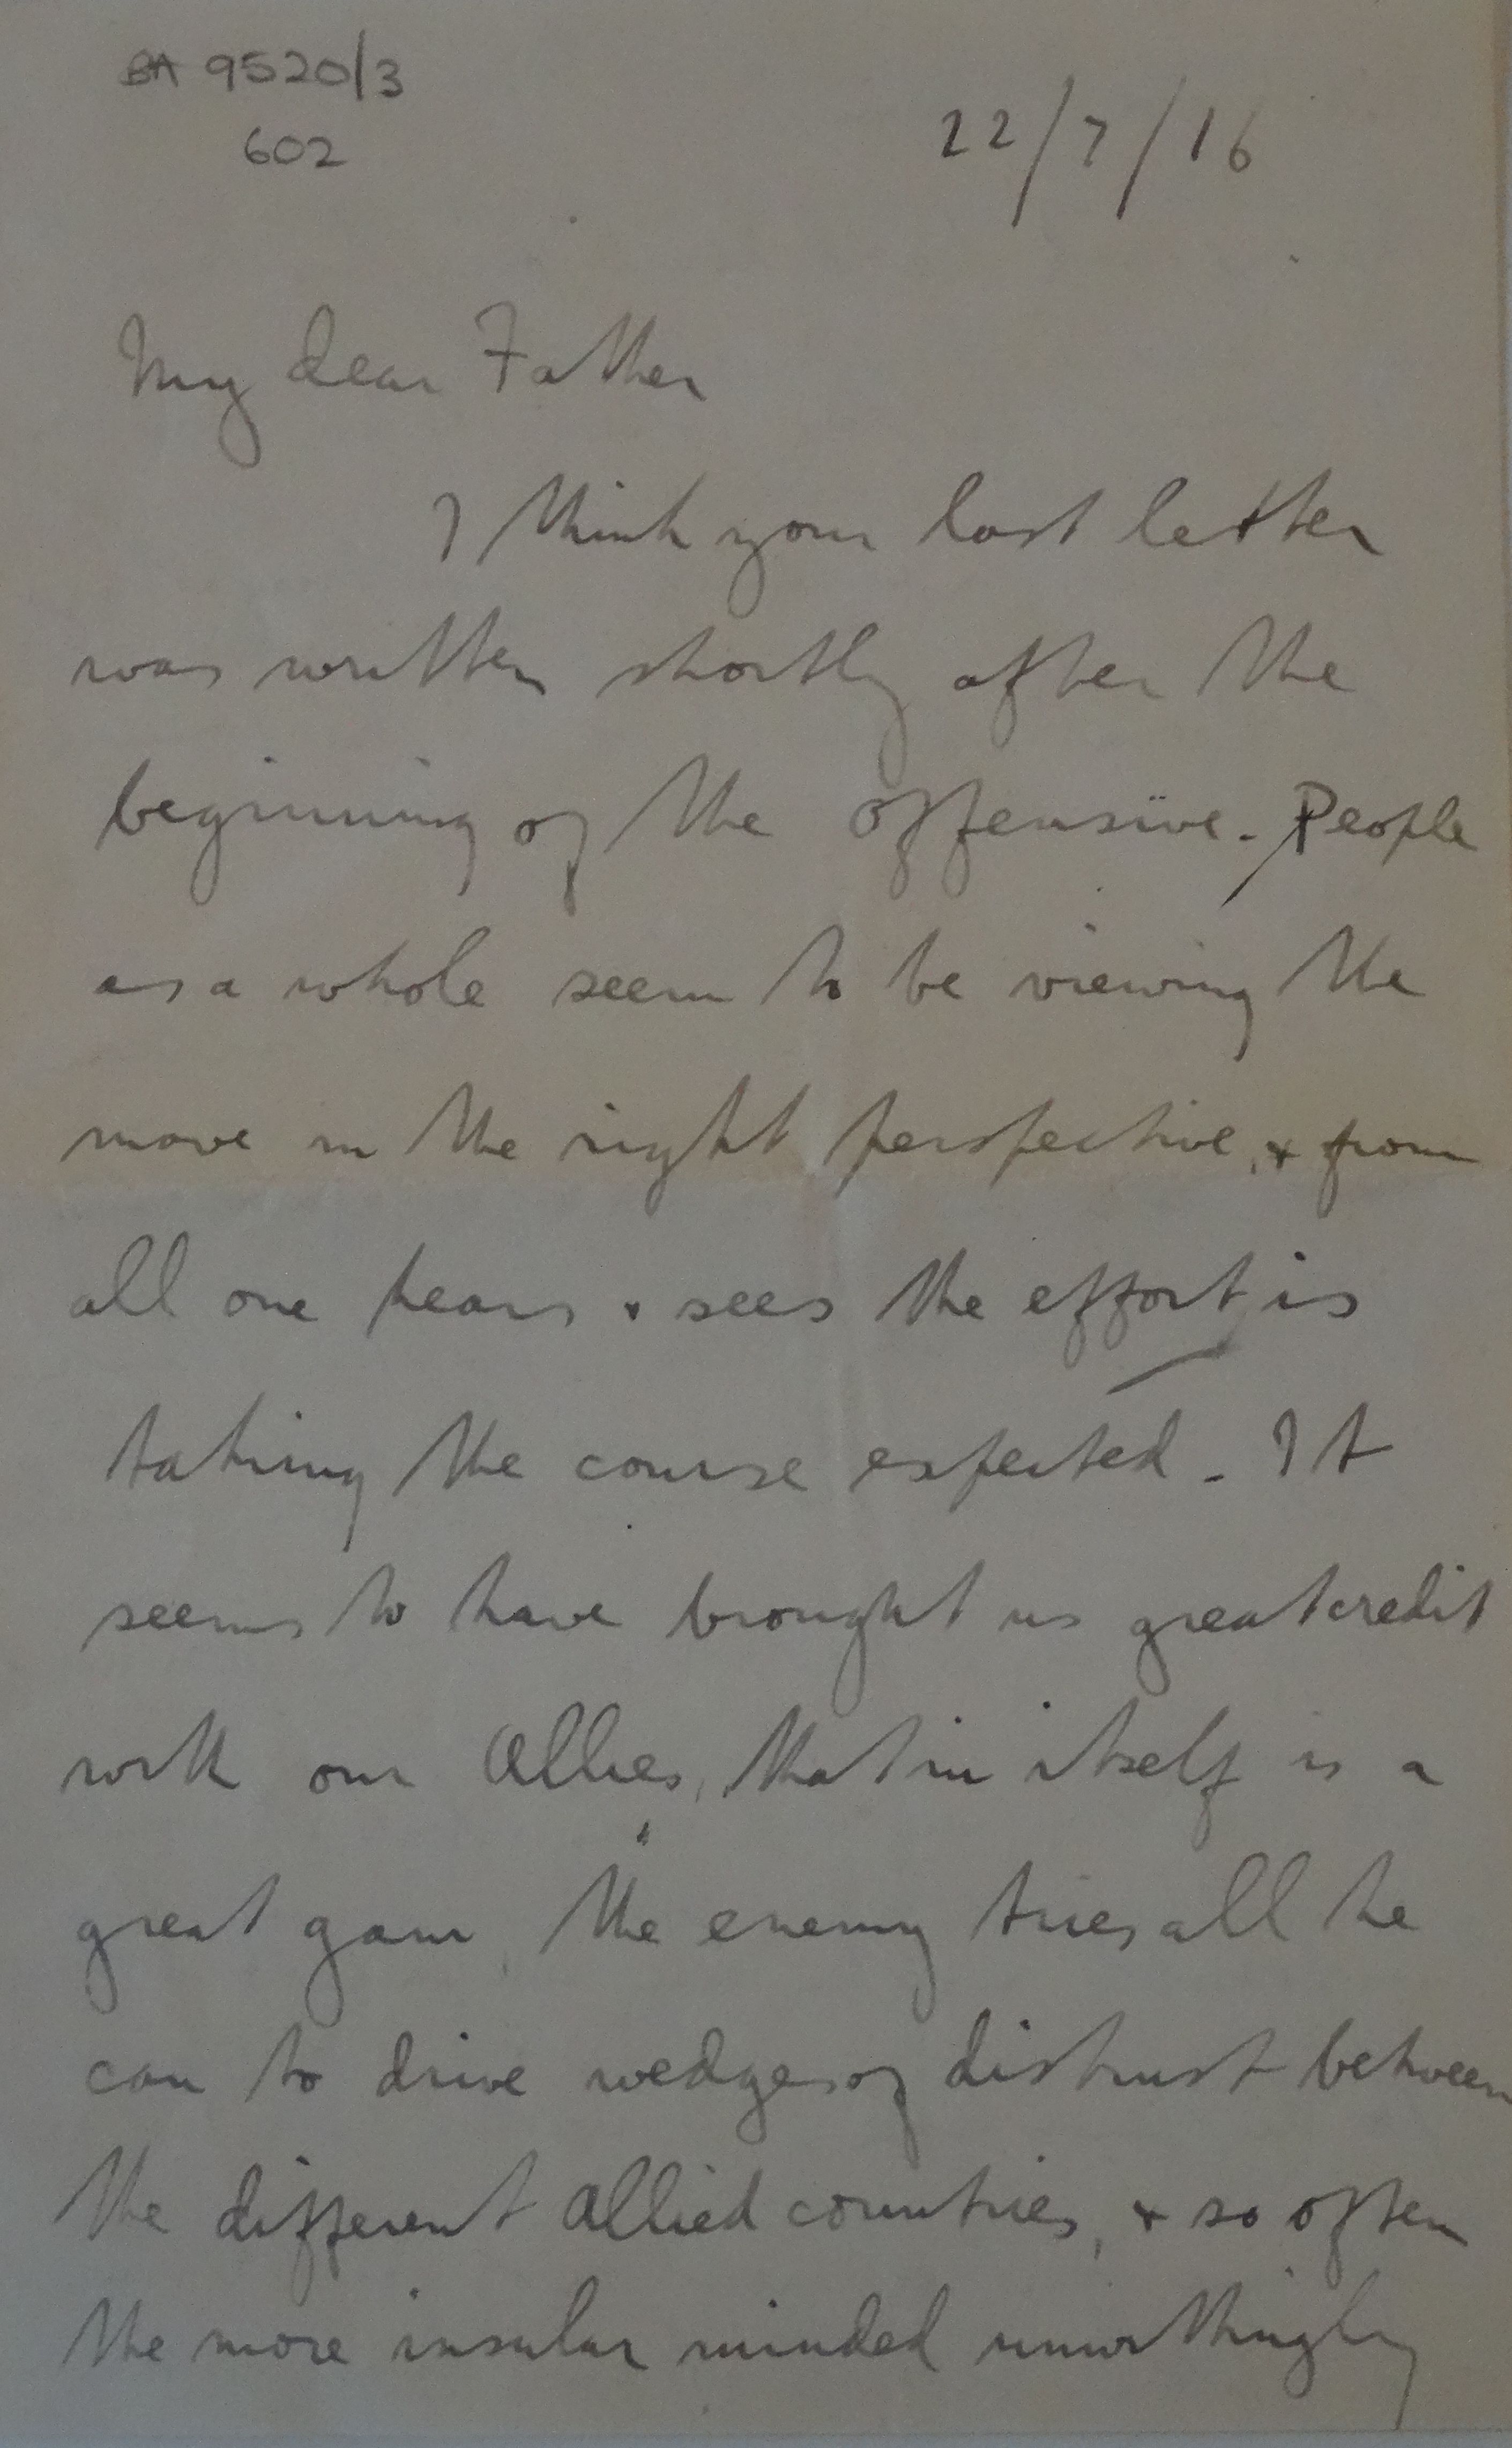 BA 9520/3
602
22/7/16
My dear Father
I think your last letter
was written shortly after the
beginning of the offensive. People
as a whole seem to be viewing the
move in the right perspective, & from
all one hears & sees the effort is
taking the course expected. It
seems to have brought us great credit
with our Allies, that in itself is a
great gain, the enemy tries all he
can to drive wedges of distrust between
the different Allied countries, & so often
the more insular minded